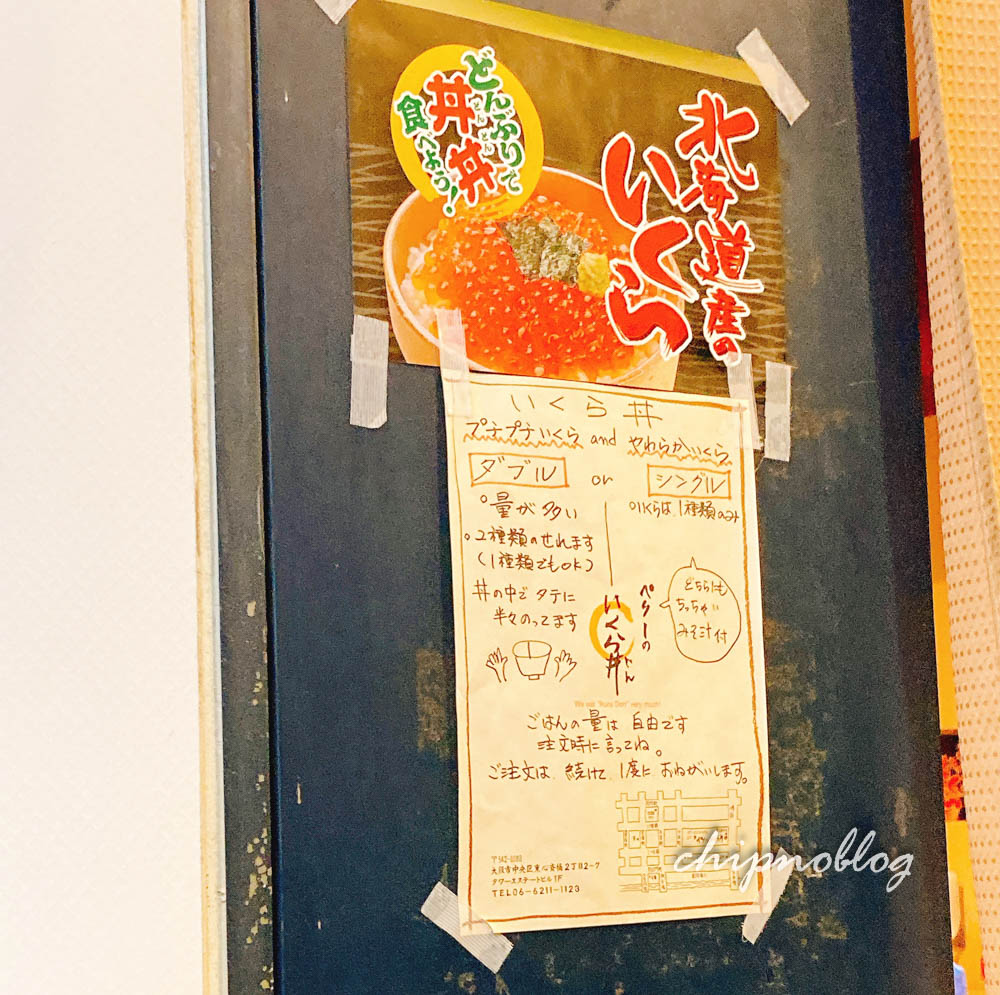 どんぶりで
丼丼
どんどん
食べよう!
北海道産の
いくら
いくら丼
プチプチいくら and やわらかいくら
ダブル or シングル
○量が多い
○いくらは、1種類のみ
○2種類のせれます
(1種類でもOK)
丼の中でタテに
半々のってます
どちらにも
ちっちゃい
みそ汁付
ペターの
いくら丼
どん
We eat "Ikura Don" very much!
ごはんの量は自由です
注文時に言ってね。
ご注文は、続けて、1度におねがいします。
大阪市中央区東心斎橋2丁目2-7
タワーズステートビル1F
TEL06-6211-1123
chipnoblog